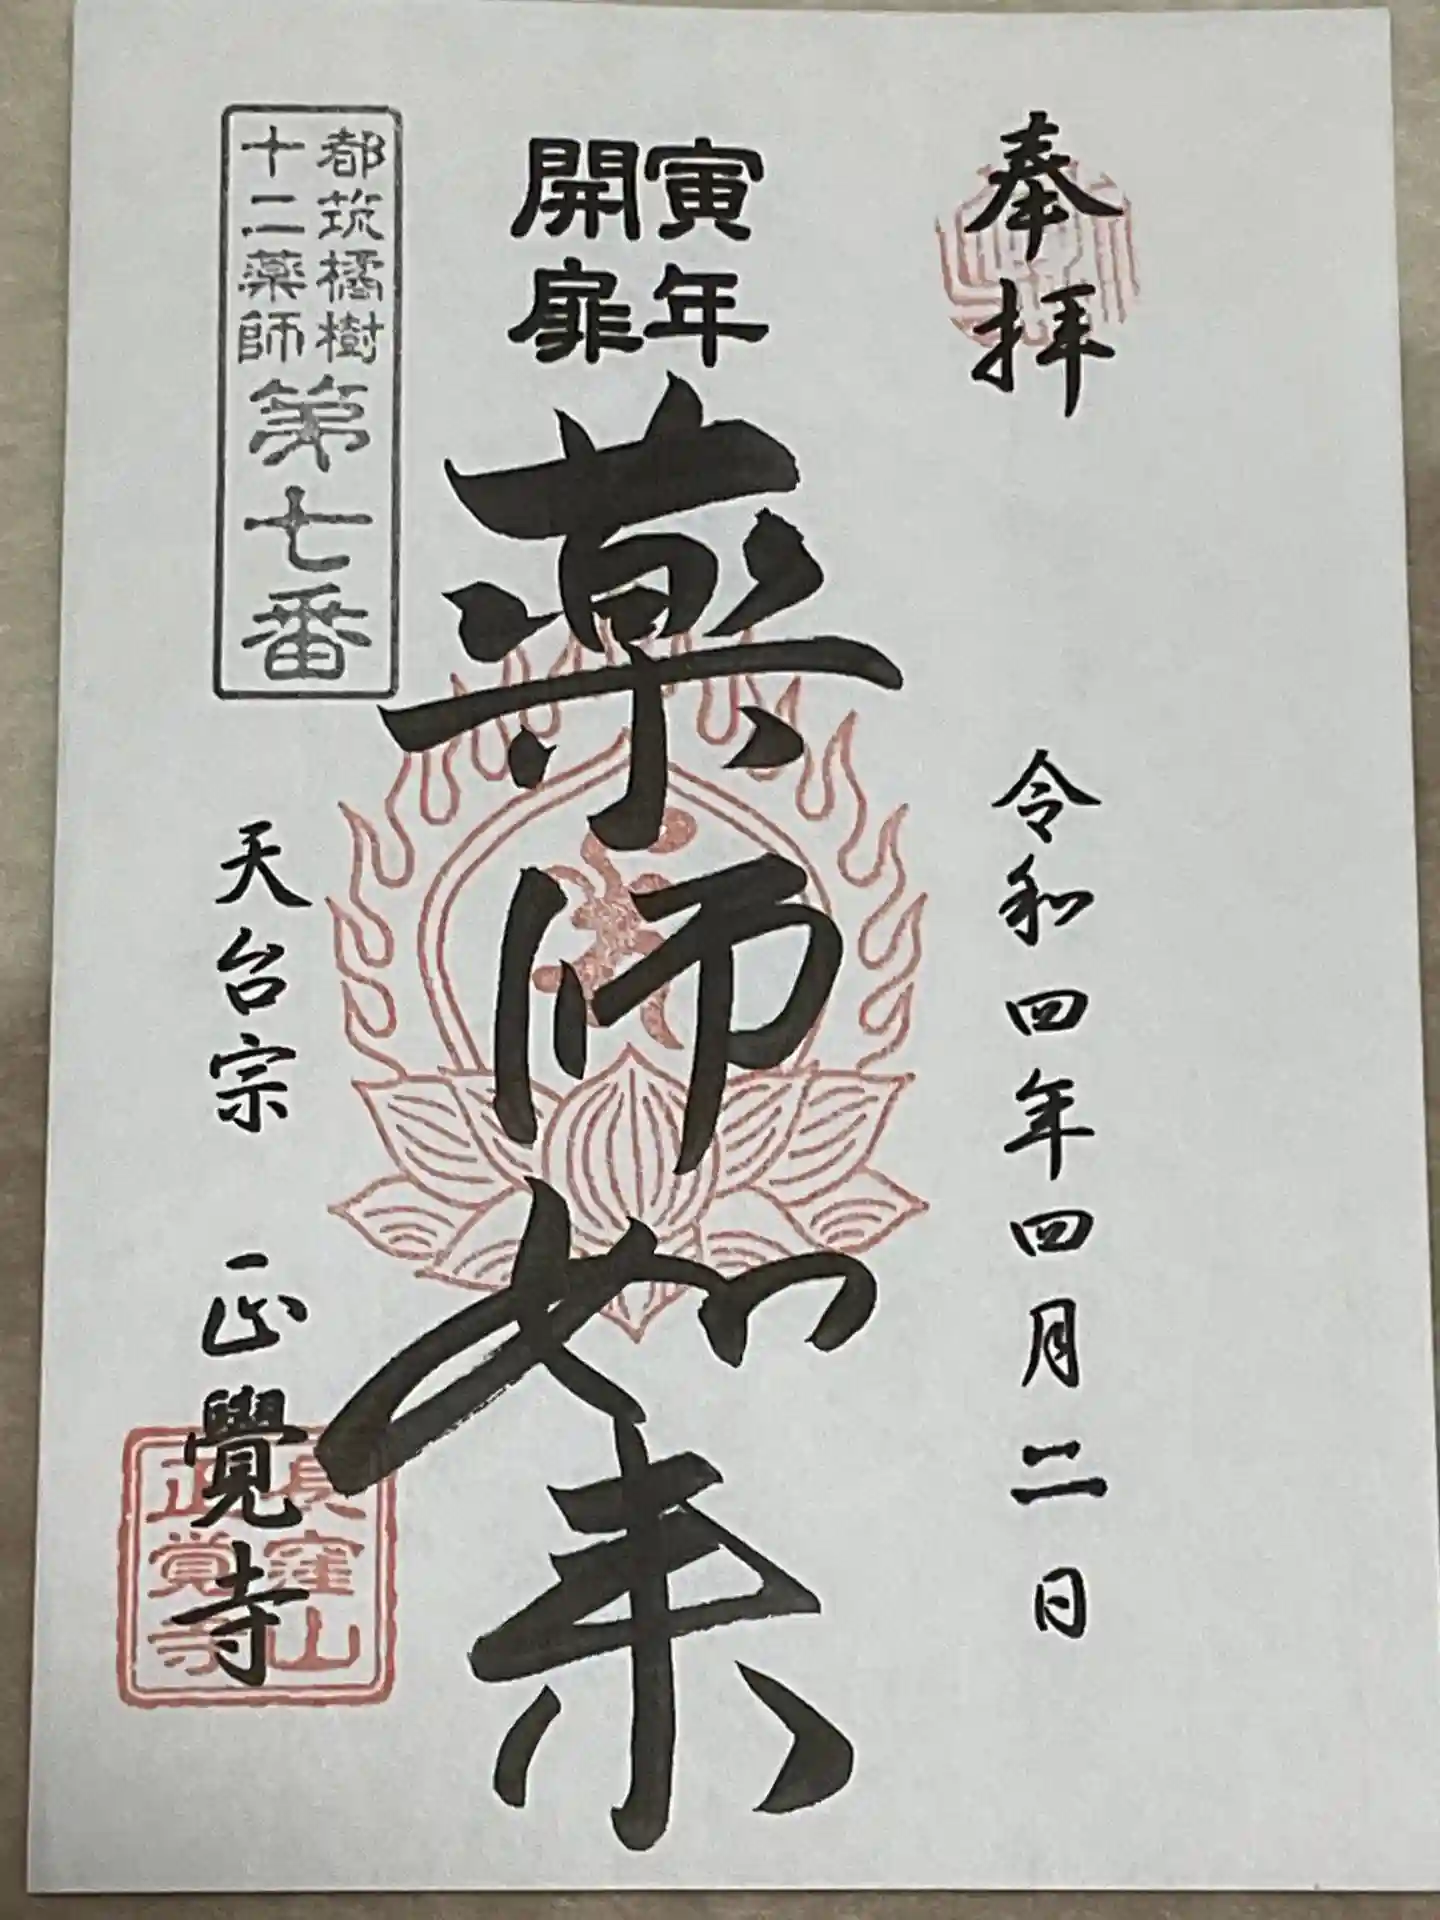 奉拝
令和四年四月二日
寅年
開扉
薬師如来
都筑橘樹
十二薬師
第七番
天台宗 正覺寺
窪山
正覚寺